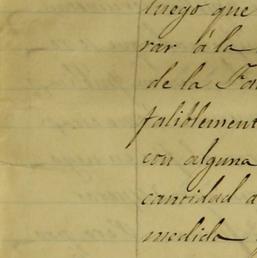 luego que
rar á la
de la Fa
faliblement
con alguna
cantidad a
medida